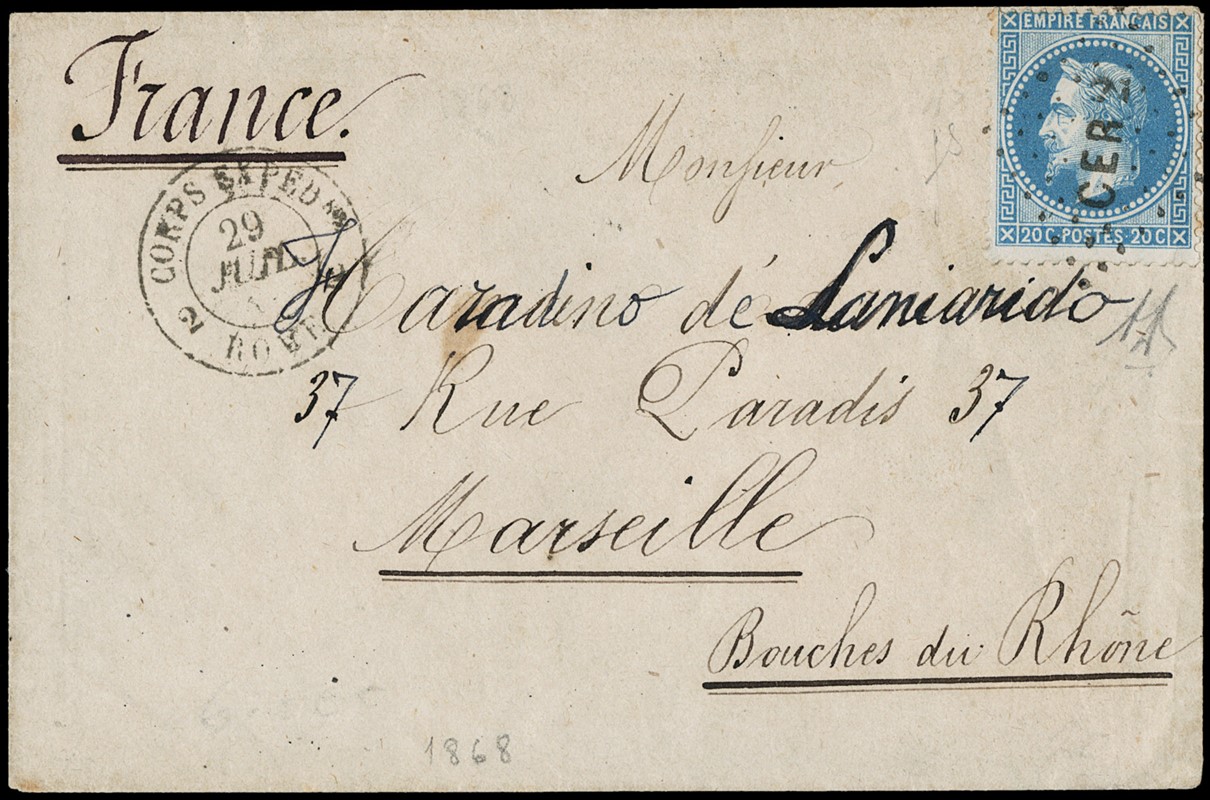 France.
EMPIRE FRANÇAIS
20 C · POSTES · 20 C
CER 2
CORPS EXPED RE
29
JUIL
2 ROME 2
Monsieur
Haradino dé Lamarido
37 Rue Paradis 37
Marseille
Bouches du Rhône
1868